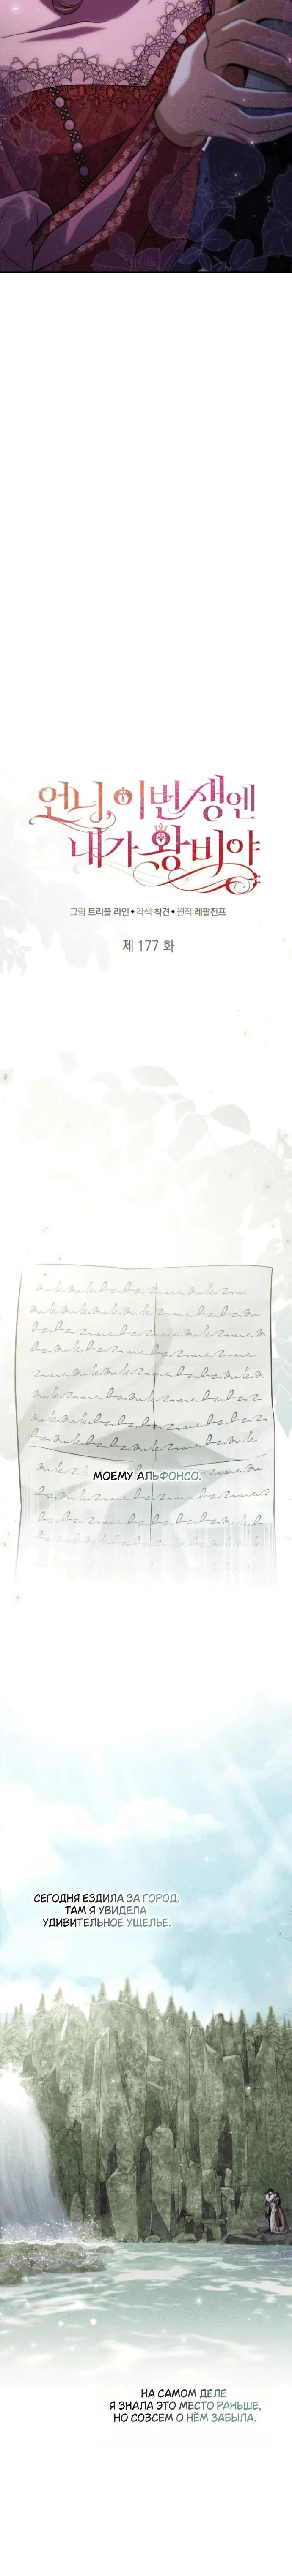 언니, 이번 생엔
내가 왕비야
그림 트리플 라인 ✦ 각색 착건 ✦ 원작 레팔진프
제 177 화
МОЕМУ АЛЬФОНСО.
СЕГОДНЯ ЕЗДИЛА ЗА ГОРОД.
ТАМ Я УВИДЕЛА
УДИВИТЕЛЬНОЕ УЩЕЛЬЕ.
НА САМОМ ДЕЛЕ
Я ЗНАЛА ЭТО МЕСТО РАНЬШЕ,
НО СОВСЕМ О НЁМ ЗАБЫЛА.